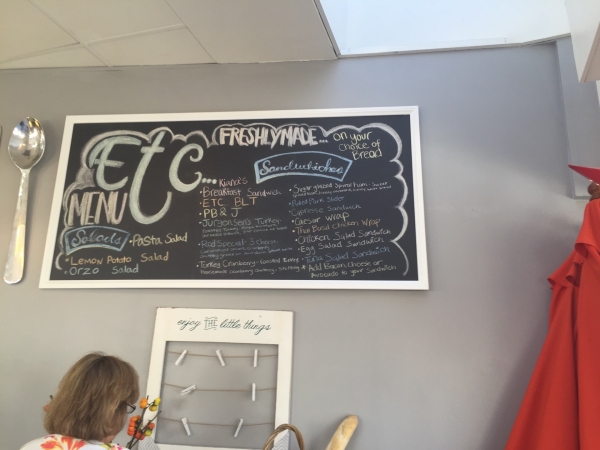 Etc...
MENU
Salads
• Pasta Salad
• Lemon Potato Salad
• Orzo Salad
FRESHLY MADE...
on your
choice of
Bread
Sandwiches
Kiana's
• Breakfast Sandwich
• ETC BLT
• PB & J
• Jurgensen's Turkey
• Red Special: 3 Cheese
• Turkey Cranberry-
• Sugar glazed Spiral Ham
• Pulled Pork Slider
• Caprese Sandwich
• Caesar Wrap
• Thai Basil Chicken Wrap
• Chicken Salad Sandwich
• Egg Salad Sandwich
• Tuna Salad Sandwich
• Add Bacon, Cheese or
Avocado to your Sandwich
enjoy THE little things